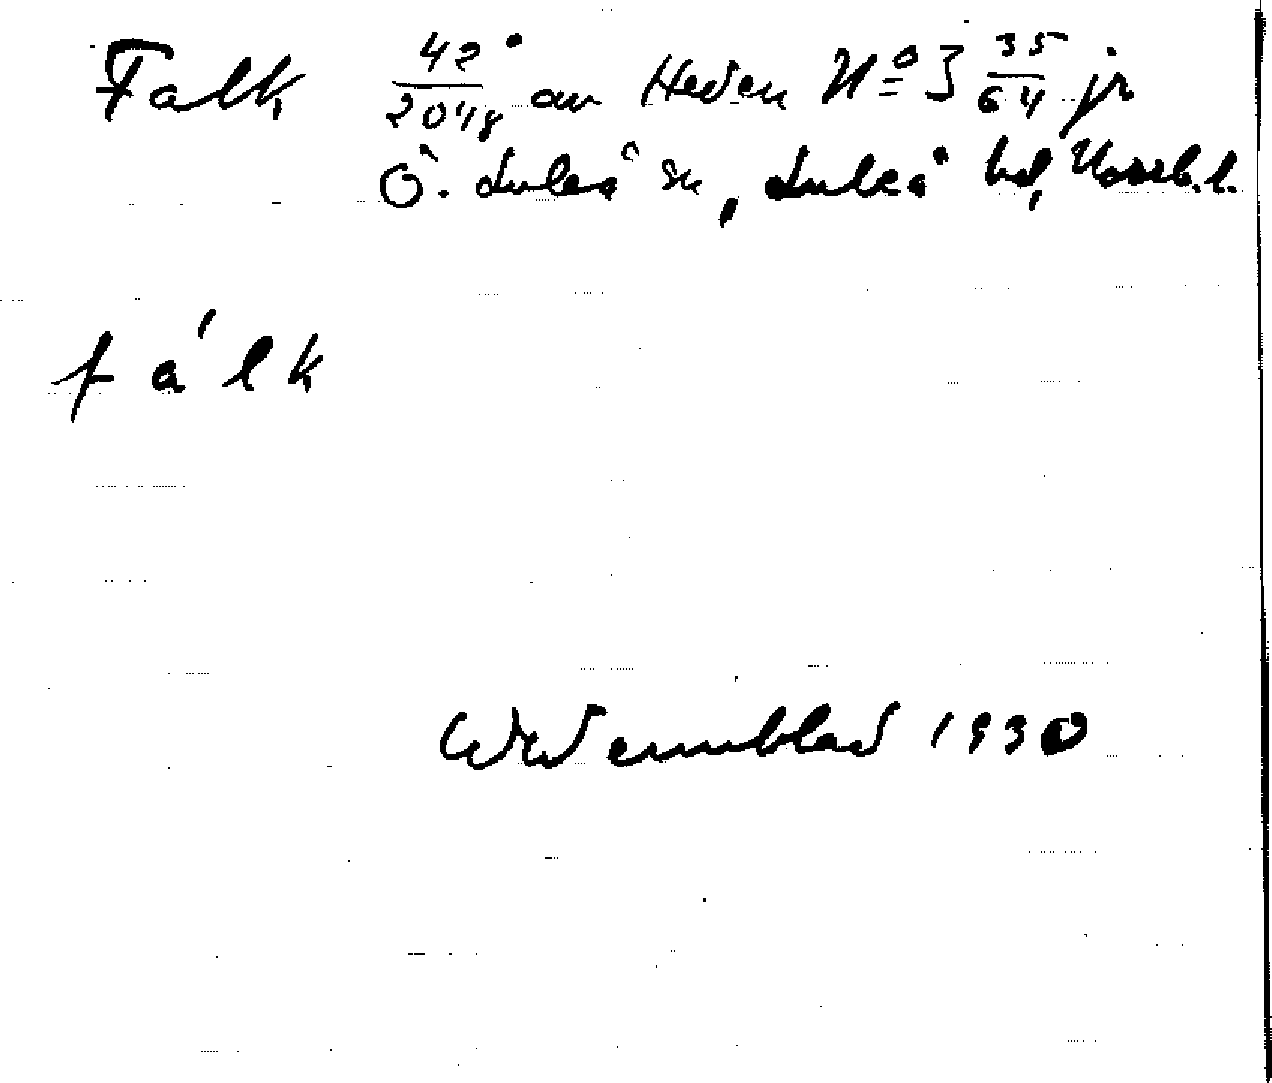 Falk 42/2048 av Heden Nº 3 35/64 jr
Ö. Luleå sn, Luleå hd, Norrb. l.
fálk
Wennblad 1930